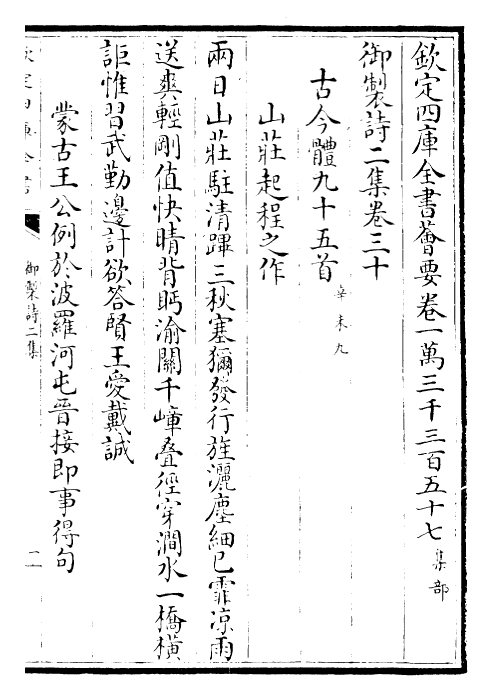 欽定四庫全書薈要卷一萬三千三百五十七集部
御製詩二集卷三十
古今體九十五首辛未九
山莊起程之作
兩日山莊駐清蹕三秋塞獮發行旌灑塵細已霏涼雨
送爽輕剛值快晴背眄渝關千嶂叠徑穿澗水一橋橫
詎惟習武勤邊計欲答賢王愛戴誠
蒙古王公例於波羅河屯晉接即事得句
御製詩二集